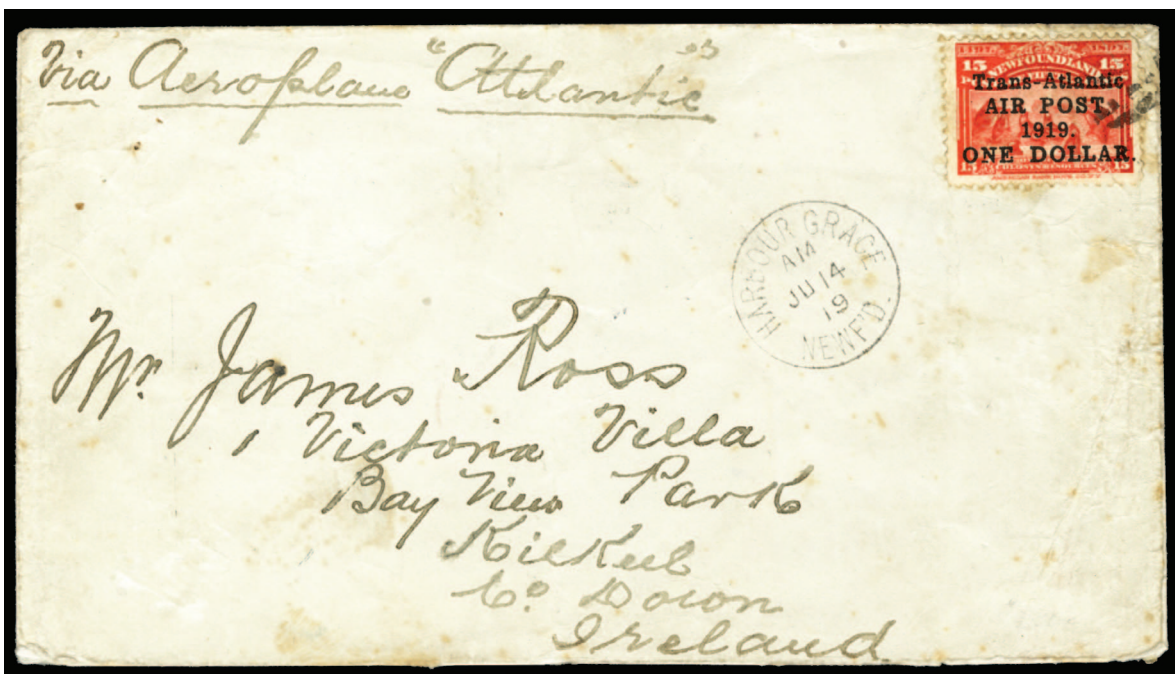 Via Aeroplane "Atlantic"
15 NEWFOUNDLAND 15
Trans-Atlantic
AIR POST,
1919.
ONE DOLLAR.
15 15
HARBOUR GRACE
AM
JU 14
19
NEWF'D.
Mr. James Ross
1 Victoria Villa
Bay View Park
Kilkeel
Co Down
Ireland